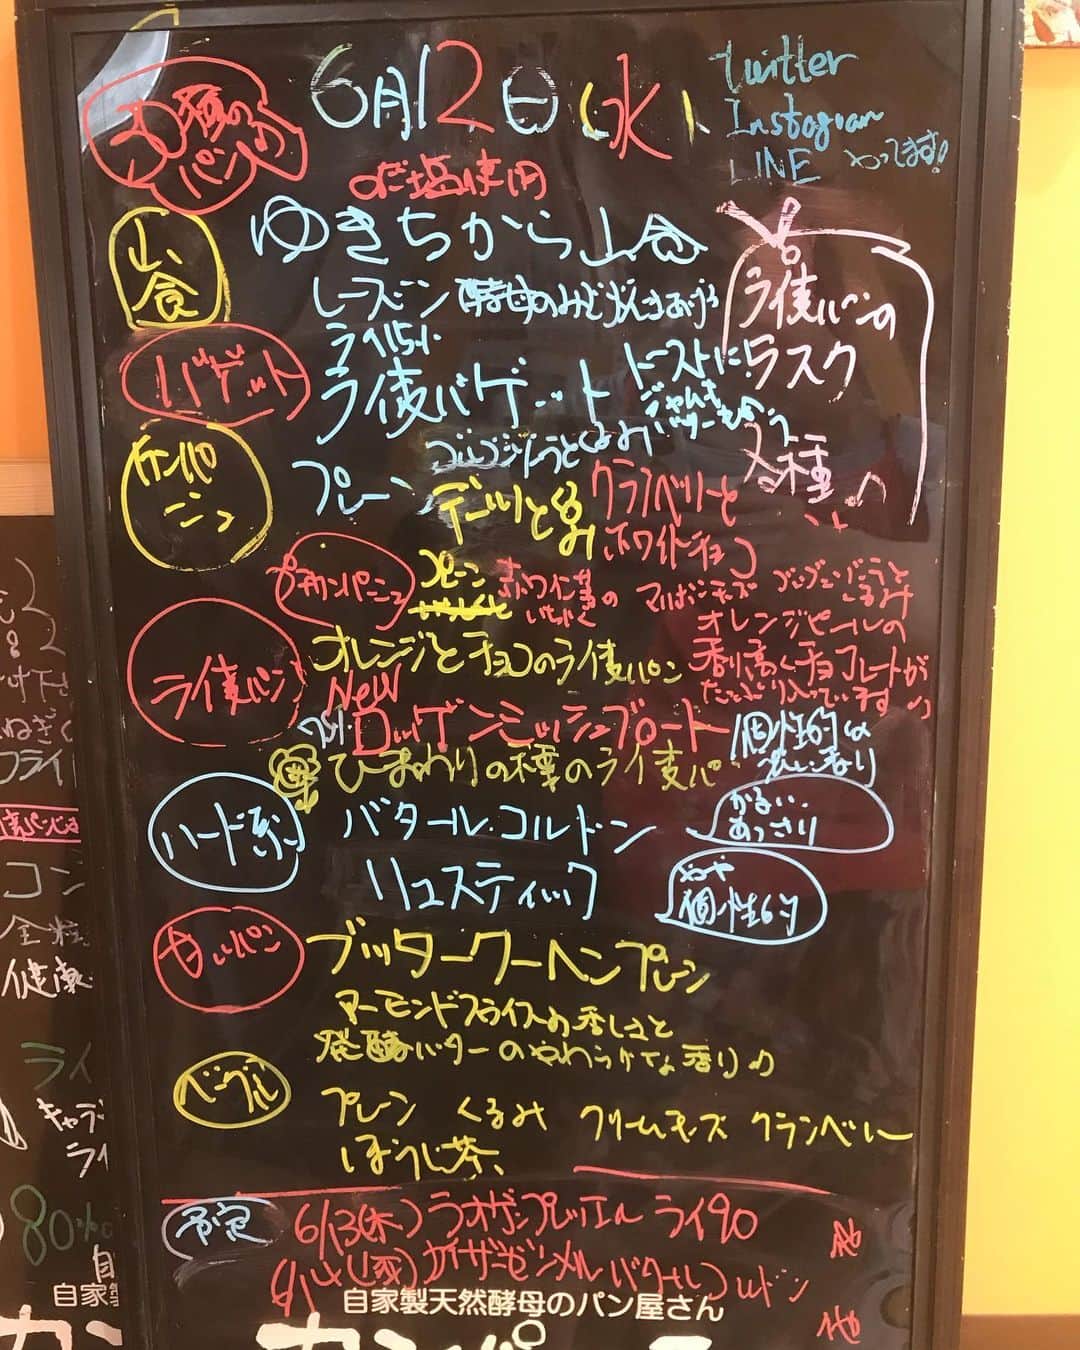 6月12日(水)
twitter
Instagram
LINE やってます!
のだ塩使用
パン
山食
ゆきちから山食
レーズン 酵母のみで
ライ麦パンの
ラスク
各種
バゲット
ライ15%
ライ麦バゲット
トーストに!
ジャムも
バターも
カンパーニュ
プレーン
ゴルゴンゾーラとくるみ
デーツとくるみ
クランベリーと
ホワイトチョコ
プチカンパーニュ
プレーン
赤ワイン煮の
いちじく
マルボーチーズ
ゴルゴンゾーラと
くるみ
ライ麦パン
オレンジとチョコのライ麦パン
オレンジピールの
香り高くチョコレートが
たっぷり入っています♪
New
ロッゲンミッシュブロート
ひまわりの種のライ麦パン
ハード系
バタール・コルドン
かるい、
あっさり
リュスティック
やや
個性的
甘いパン
ブッタークーヘンプレーン
アーモンドスライスの香しさと
発酵バターのやわらかな香り♪
ベーグル
プレーン くるみ クリームチーズ クランベリー
ほうじ茶、
予定
6/13(木) ラオゲンプレッツェル ライ90 他
6/14(金) カイザーゼンメル バタールコルドン 他
自家製天然酵母のパン屋さん
フライ
コン
健康
ライ
キャラ
ライ
80%
自家製